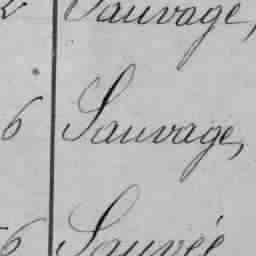 Sauvage,
6 Sauvage,
6 Sauvée